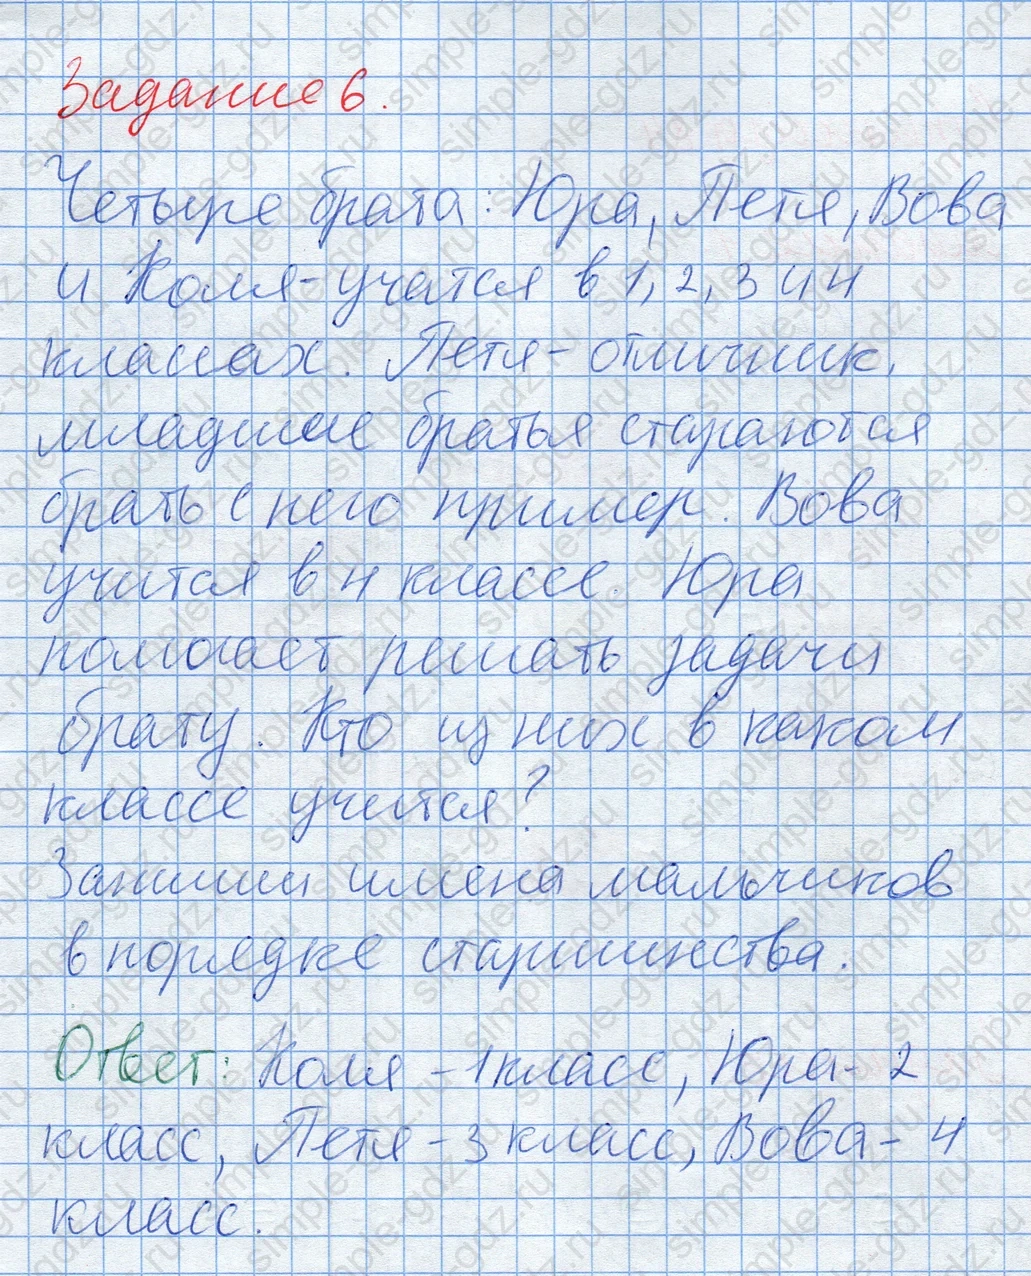 Задание 6.
Четыре брата: Юра, Петя, Вова
и Коля - учатся в 1, 2, 3 и 4
классах. Петя - отличник,
младшие братья стараются
брать с него пример. Вова
учится в 4 классе. Юра
помогает решать задачи
брату. Кто из них в каком
классе учится?
Запиши имена мальчиков
в порядке старшинства.
Ответ: Коля - 1 класс, Юра - 2
класс, Петя - 3 класс, Вова - 4
класс.